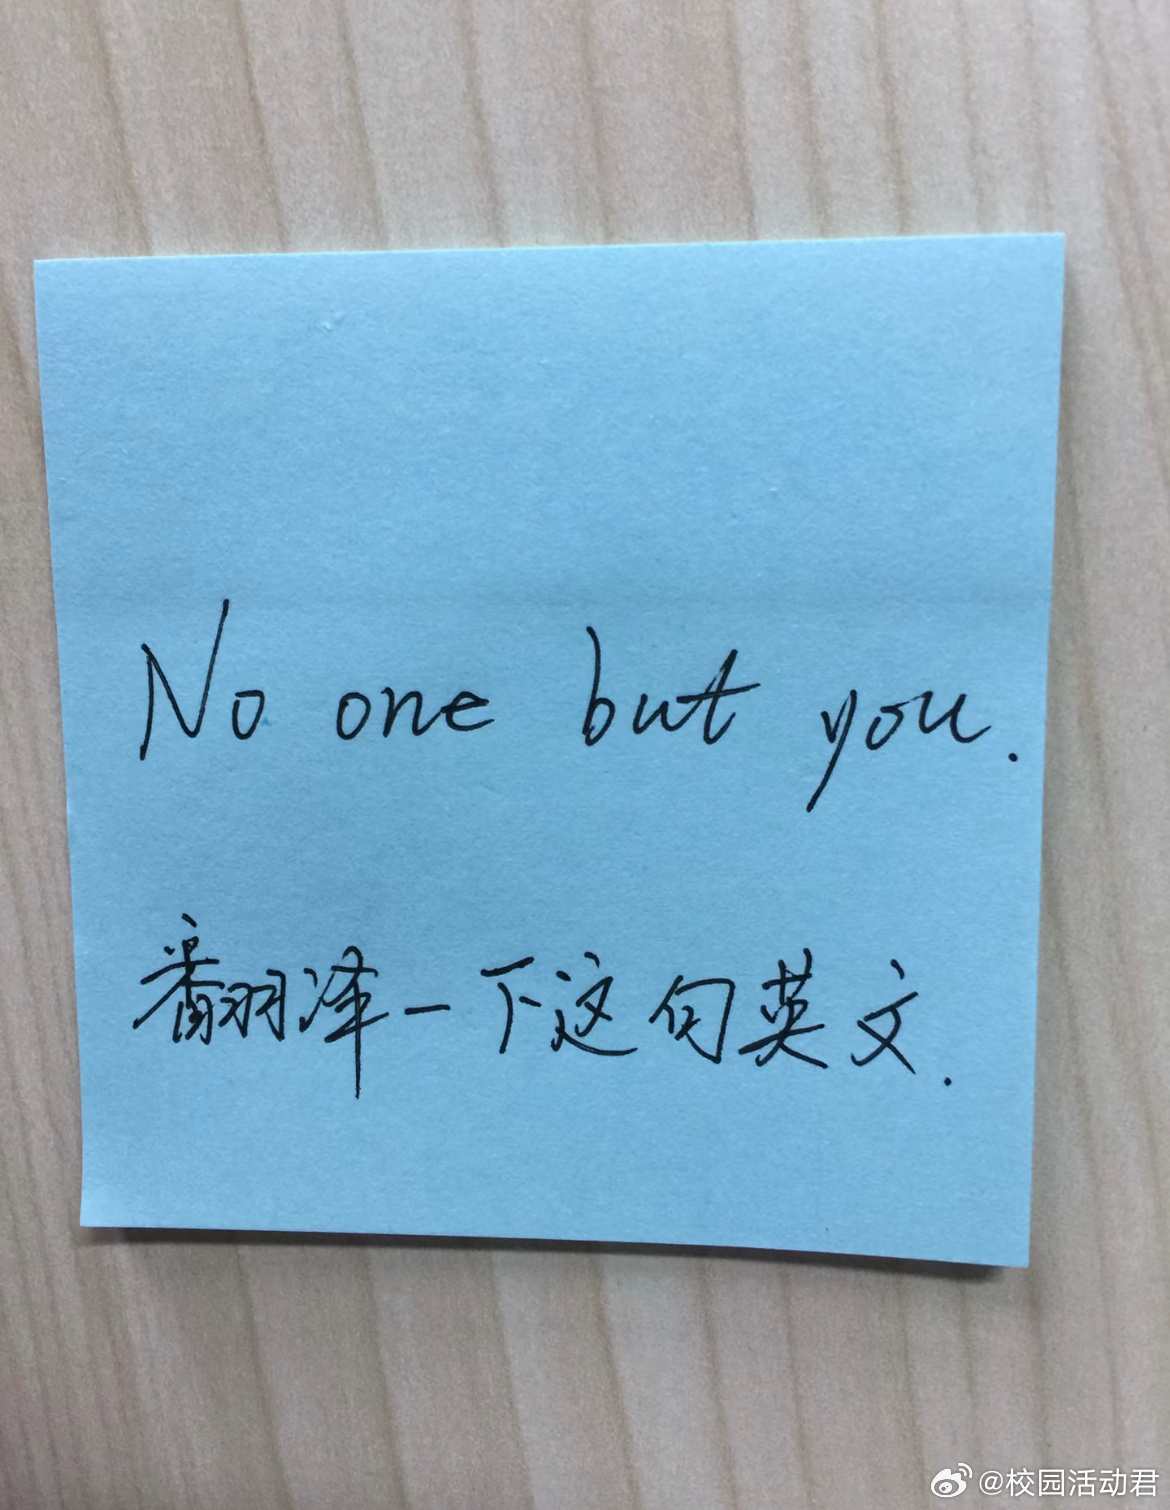 No one but you.
翻译一下这句英文.
@校园活动君